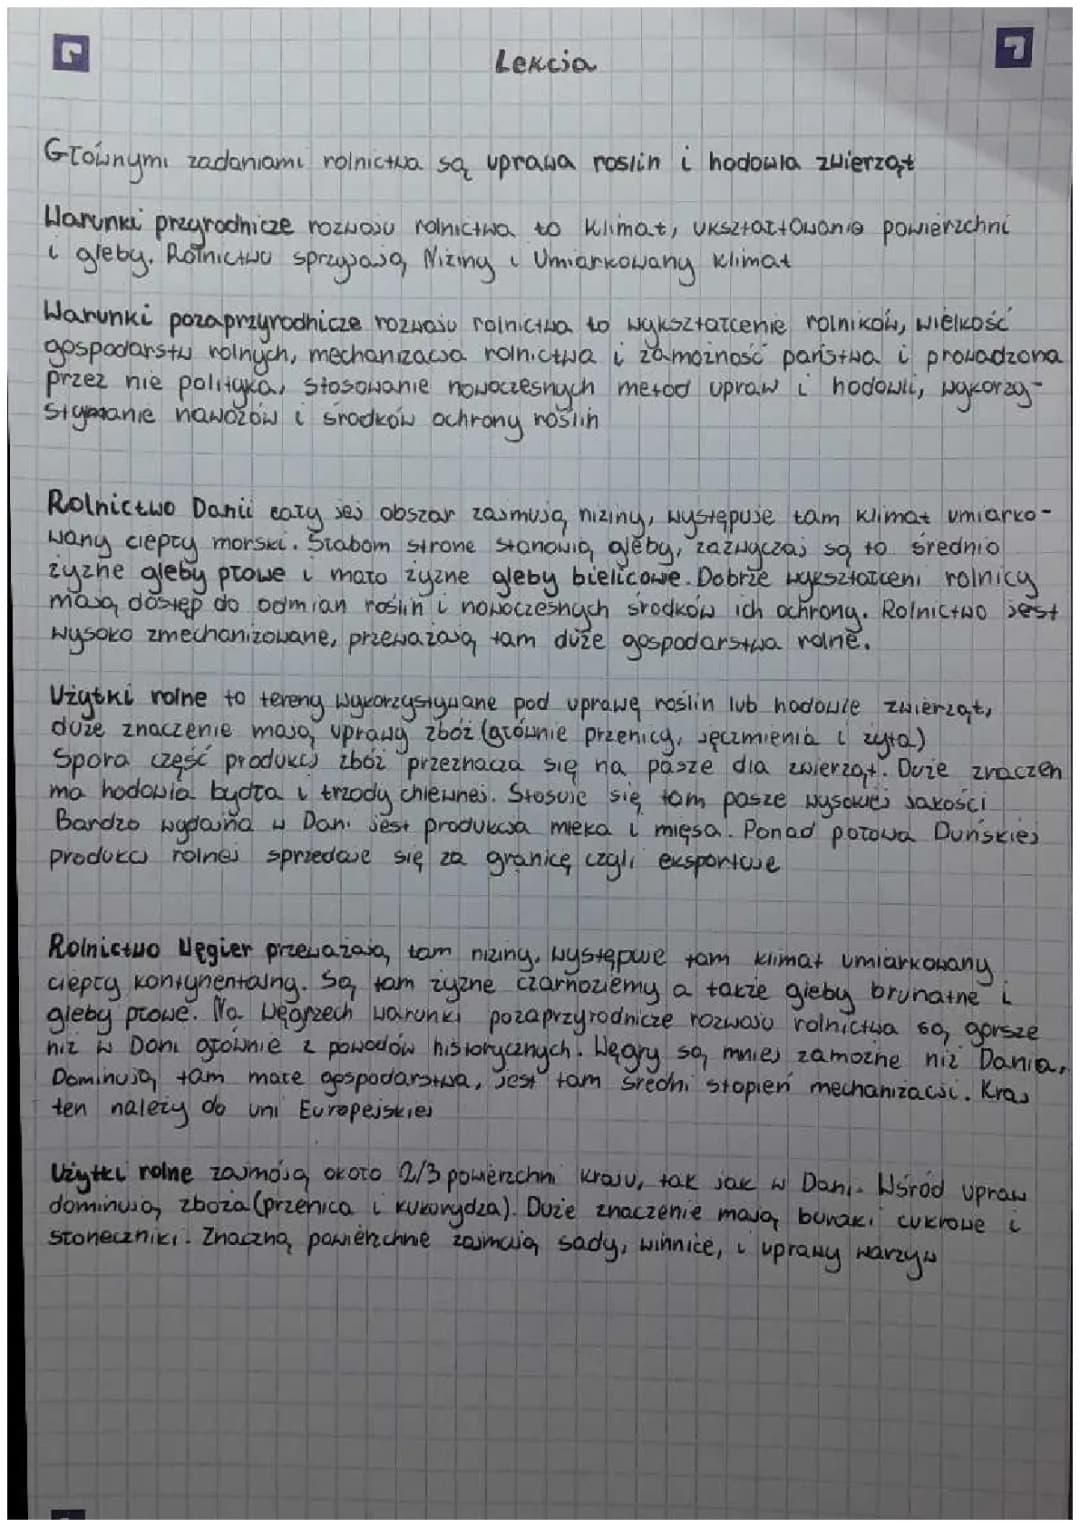 Lekcja
Głównymi zadaniami rolnictwa są uprawa roślin i hodowla zwierząt
Warunki przyrodnicze rozwoju rolnictwa to klimat, ukształtowanie powierzchni
i gleby. Rolnictwu sprzyjają Niziny i Umiarkowany klimat
Warunki pozaprzyrodnicze rozwoju rolnictwa to wykształcenie rolników, wielkość
gospodarstw rolnych, mechanizacja rolnictwa i zamożność państwa i prowadzona
przez nie polityka, stosowanie nowoczesnych metod upraw i hodowli, wykorzy-
stywanie nawozów i środków ochrony roślin
Rolnictwo Danii cały jej obszar zajmują niziny, występuje tam klimat umiarko-
wany ciepły morski. Słabom strone stanowią gleby, zazwyczaj są to średnio
żyzne gleby płowe i mało żyzne gleby bielicowe. Dobrze wykształceni rolnicy
mają dostęp do odmian roślin i nowoczesnych środków ich ochrony. Rolnictwo jest
wysoko zmechanizowane, przeważają tam duże gospodarstwa rolne.
Użytki rolne to tereny wykorzystywane pod uprawę roślin lub hodowle zwierząt,
duże znaczenie mają uprawy zbóż (głównie przenicy, jęczmienia i żyta)
Spora część produkcj zbóż przeznacza się na pasze dla zwierząt. Duże znaczen
ma hodowla bydła i trzody chlewnej. Stosuje się tam pasze wysokiej jakości
Bardzo wydajna w Dani jest produkcja mleka i mięsa. Ponad połowa Duńskiej
produkcj rolnej sprzedaje się za granicę czyli eksportuje
Rolnictwo Węgier przeważają tam niziny, występuje tam klimat umiarkowany
ciepły kontynentalny. Są tam żyzne czarnoziemy a także gleby brunatne i
gleby płowe. Na Węgrzech warunki pozaprzyrodnicze rozwoju rolnictwa są gorsze
niż w Dani głównie z powodów historycznych. Węgry są mniej zamożne niż Dania,
Dominują tam małe gospodarstwa, jest tam średni stopień mechanizacji. Kraj
ten należy do uni Europejskiej
Użytki rolne zajmują około 2/3 powierzchni kraju, tak jak w Dani. Wśród upraw
dominują zboża (przenica i kukurydza). Duże znaczenie mają buraki cukrowe i
słoneczniki. Znaczną powierzchnie zajmują sady, winnice, i uprawy warzyw